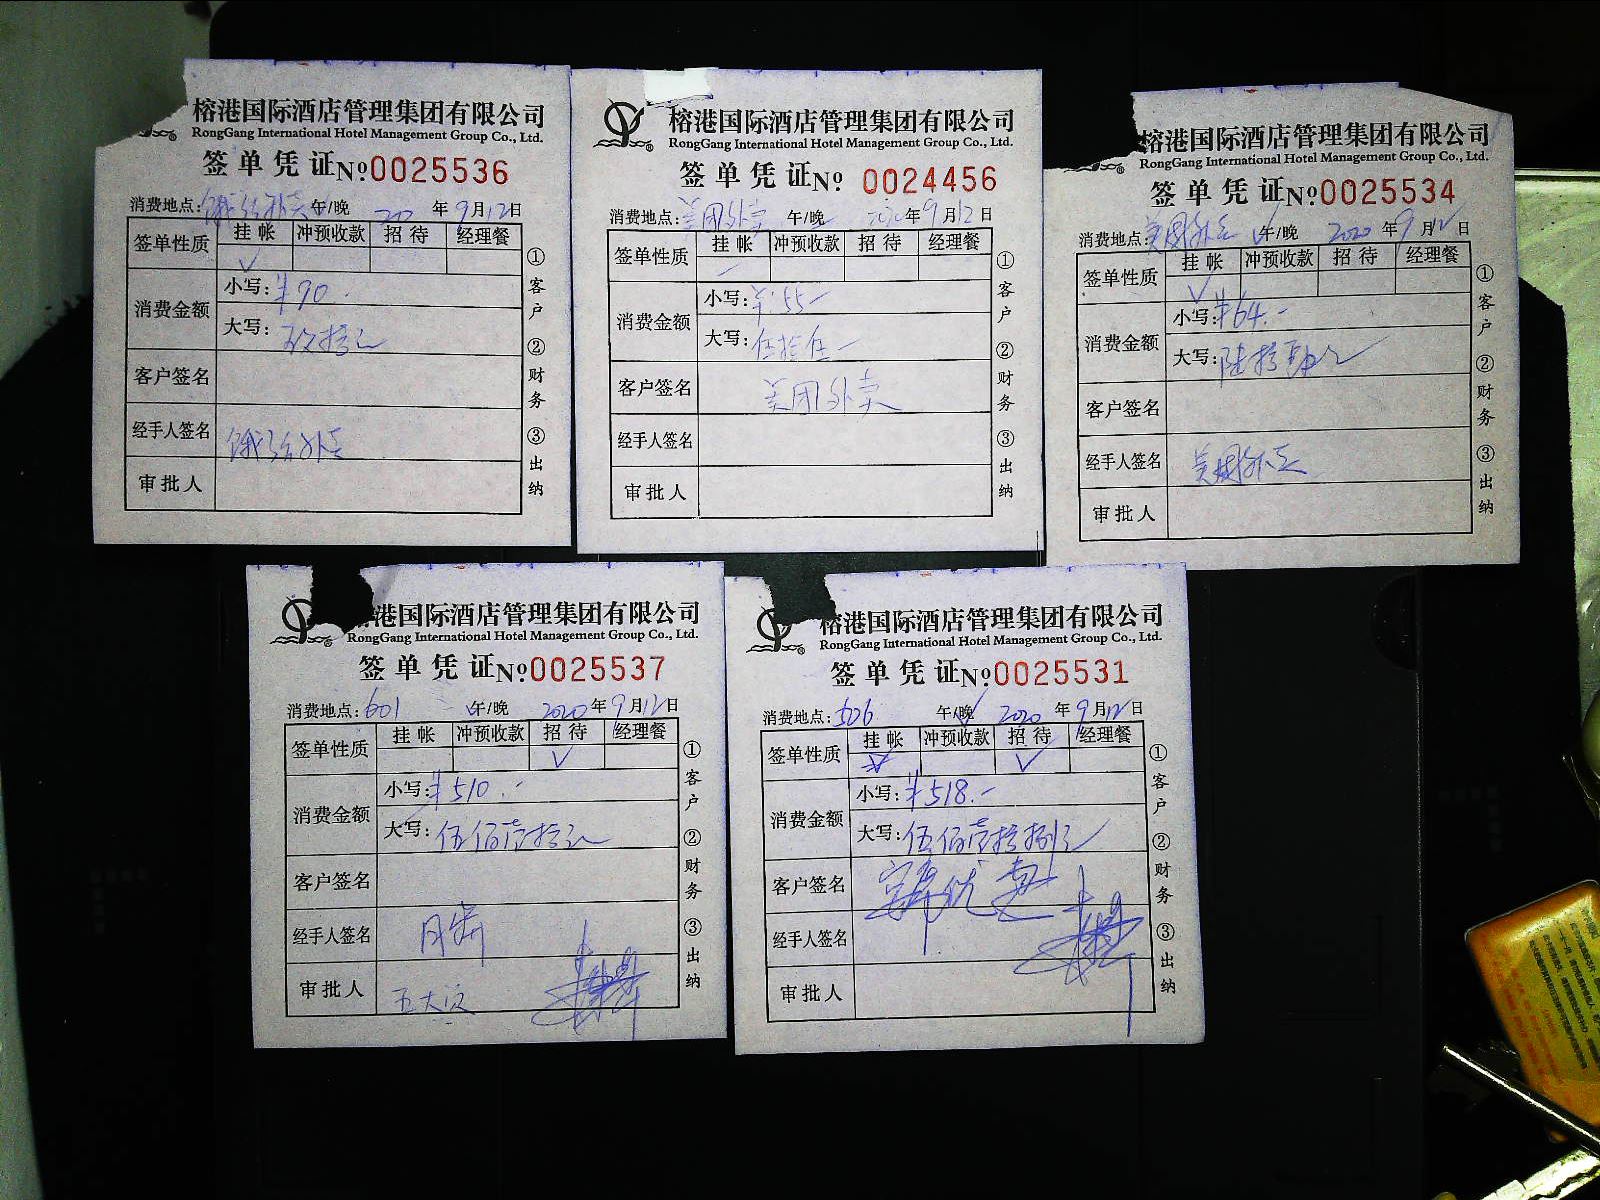 榕港国际酒店管理集团有限公司
RongGang International Hotel Management Group Co., Ltd.
签单凭证 №0025536
消费地点: 饿了么外卖 午/晚 2020年9月12日
签单性质 挂帐 冲预收款 招待 经理餐
✓
消费金额 小写: ¥90.
大写: 玖拾元
客户签名
经手人签名 饿了么外卖
审批人
①客户 ②财务 ③出纳
榕港国际酒店管理集团有限公司
RongGang International Hotel Management Group Co., Ltd.
签单凭证 № 0024456
消费地点: 美团外卖 午/晚 2020年9月12日
签单性质 挂帐 冲预收款 招待 经理餐
消费金额 小写: ¥.55-
大写: 伍拾伍
客户签名 美团外卖
经手人签名
审批人
①客户 ②财务 ③出纳
榕港国际酒店管理集团有限公司
RongGang International Hotel Management Group Co., Ltd.
签单凭证 №0025534
消费地点: 美团外卖 午/晚 2020年9月12日
签单性质 挂帐 冲预收款 招待 经理餐
✓
消费金额 小写: ¥64.-
大写: 陆拾肆元
客户签名
经手人签名 美团外卖
审批人
①客户 ②财务 ③出纳
港国际酒店管理集团有限公司
RongGang International Hotel Management Group Co., Ltd.
签单凭证 №0025537
消费地点: 601 午/晚 2020年9月12日
签单性质 挂帐 冲预收款 招待 经理餐
✓
消费金额 小写: ¥510.-
大写: 伍佰壹拾元
客户签名
经手人签名
审批人
①客户 ②财务 ③出纳
榕港国际酒店管理集团有限公司
RongGang International Hotel Management Group Co., Ltd.
签单凭证 №0025531
消费地点: 526 午/晚 2020年9月12日
签单性质 挂帐 冲预收款 招待 经理餐
✓
消费金额 小写: ¥518.-
大写: 伍佰壹拾捌元
客户签名
经手人签名
审批人
①客户 ②财务 ③出纳